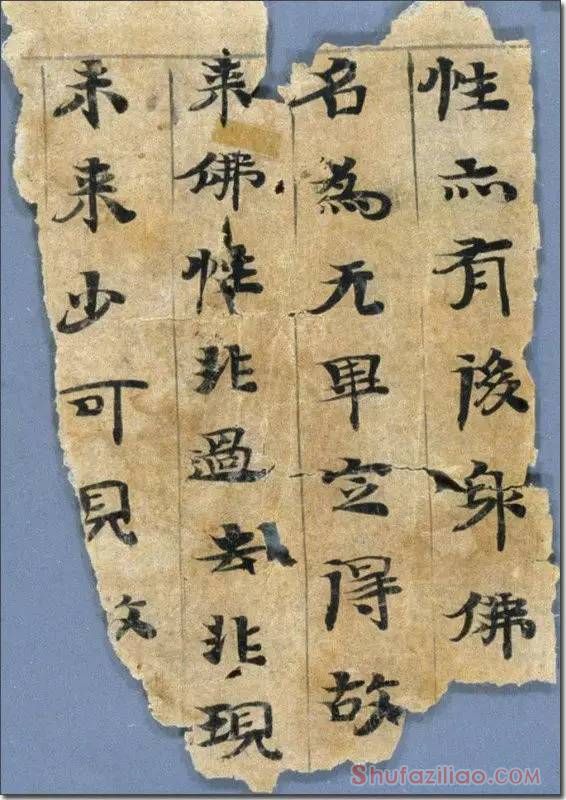 性亦有後身佛
名為无畢定得故
来佛性非過去非現
未来少可見故
Shufaziliao.com